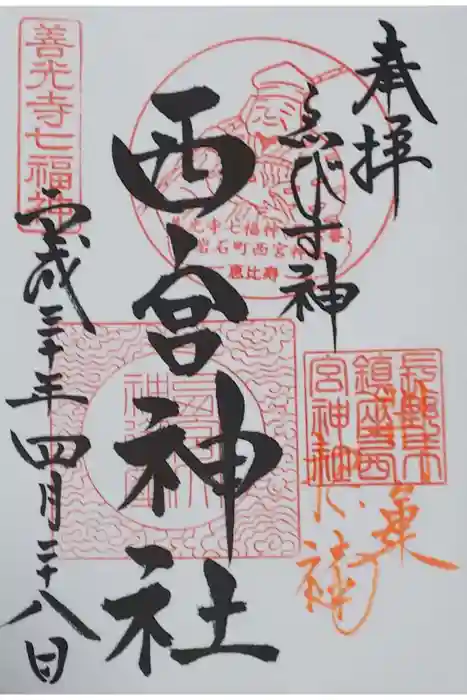 奉拝
ゑびす神
西宮神社
平成三十年四月二十八日
善光寺七福神
善光寺七福神
岩石町西宮神
恵比寿
長野市
鎮座西
宮神社